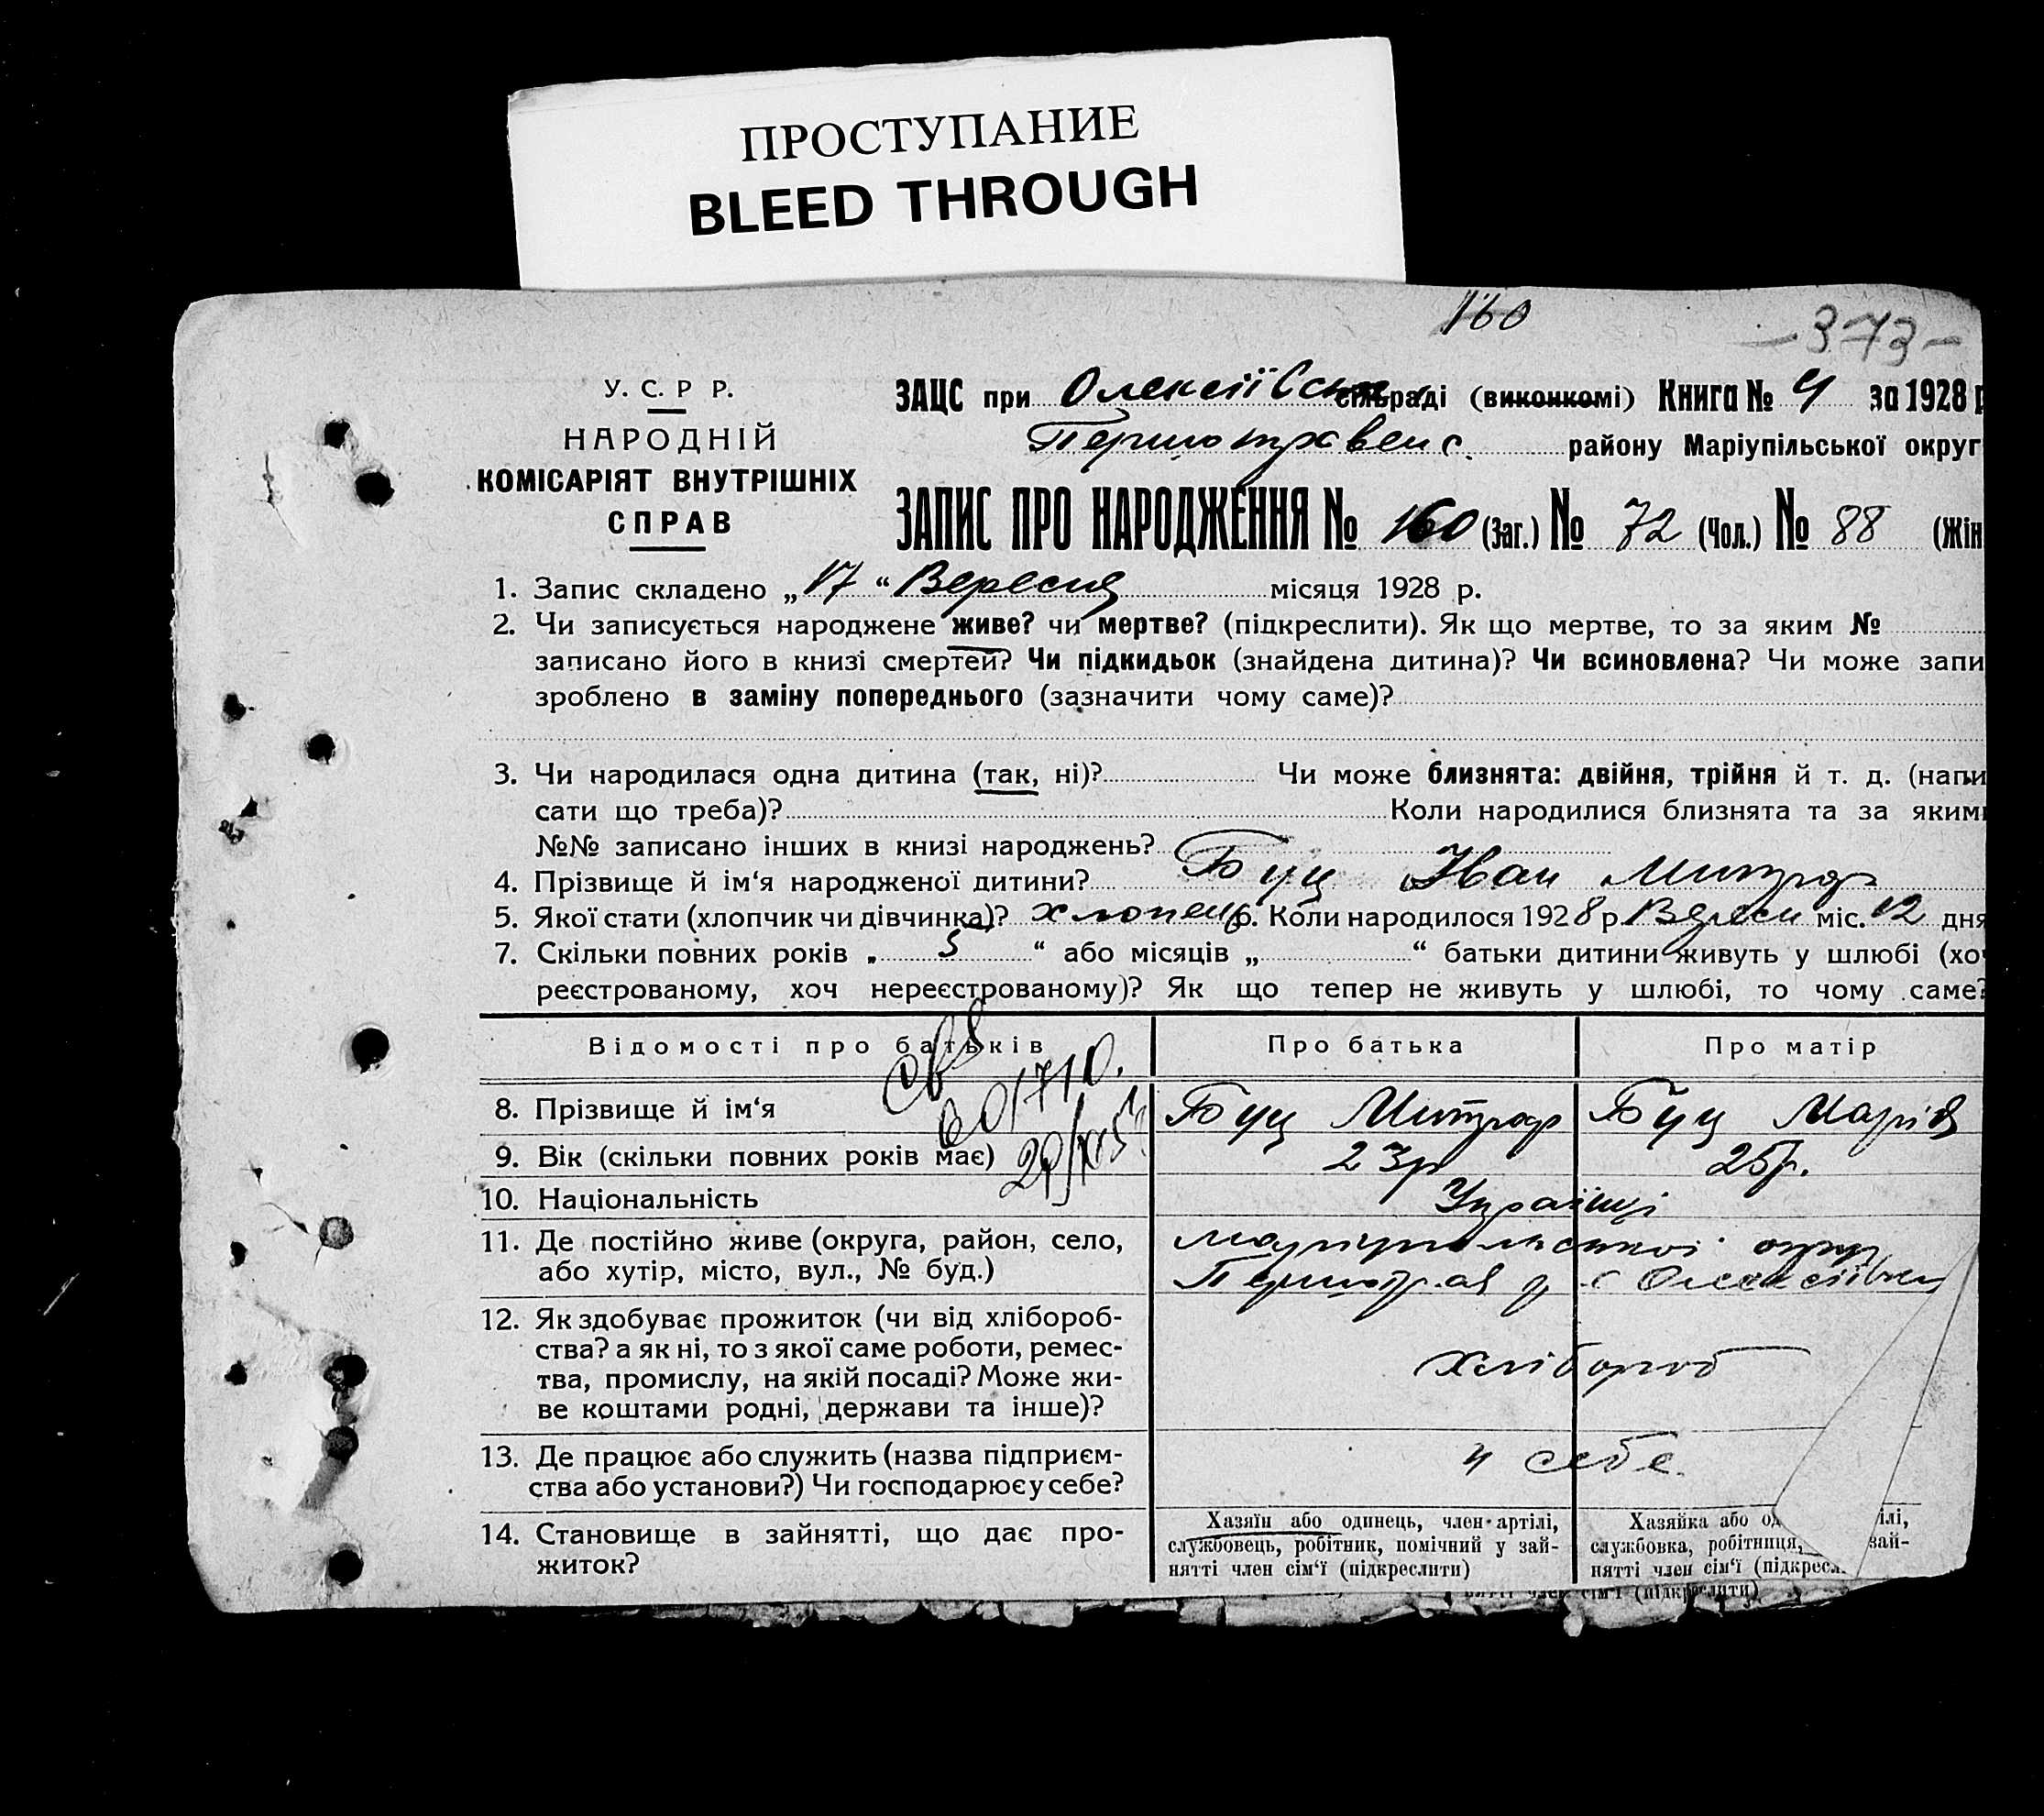 ПРОСТУПАНИЕ
BLEED THROUGH
160
-373-
У. С. Р Р.
НАРОДНІЙ
КОМІСАРІЯТ ВНУТРІШНІХ
СПРАВ
ЗАЦС при Олексіївськ сільраді (виконкомі) Книга № 4 за 1928 р
Першотравенс. району Маріупільської округ
ЗАПИС ПРО НАРОДЖЕННЯ № 160 (Заг.) № 72 (Чол.) № 88 (Жін
1. Запис складено „17“ Вересня місяця 1928 р.
2. Чи записується народжене живе? чи мертве? (підкреслити). Як що мертве, то за яким №
записано його в книзі смертей? Чи підкидьок (знайдена дитина)? Чи всиновлена? Чи може запи
зроблено в заміну попереднього (зазначити чому саме)?
3. Чи народилася одна дитина (так, ні)? Чи може близнята: двійня, трійня й т. д. (напи
сати що треба)? Коли народилися близнята та за яким
№№ записано інших в книзі народжень?
4. Прізвище й ім‘я народженої дитини? Буц Іван Митроф
5. Якої стати (хлопчик чи дівчинка)? хлопець 6. Коли народилося 1928 р. Вересн міс. 12 дня
7. Скільки повних років „ 5 “ або місяців „ “ батьки дитини живуть у шлюбі (хоч
реєстрованому, хоч нереєстрованому)? Як що тепер не живуть у шлюбі, то чому саме?
Відомості про батьків Про батька Про матір
8. Прізвище й ім‘я Буц Митроф Буц Марія
9. Вік (скільки повних років має) 23р 25р.
10. Національність Українці
11. Де постійно живе (округа, район, село, Маріупольської окр
або хутір, місто, вул., № буд.) Першотрав р. с Олексіївки
12. Як здобуває прожиток (чи від хлібороб-
ства? а як ні, то з якої саме роботи, ремес- Хлібороб
тва, промислу, на якій посаді? Може жи-
ве коштами родні, держави та інше)?
13. Де працює або служить (назва підприєм- у себе.
ства або установи?) Чи господарює у себе?
14. Становище в зайнятті, що дає про-
житок?
Хазяїн або одинець, член артілі,
службовець, робітник, помічний у зай-
нятті член сім‘ї (підкреслити)
Хазяйка або од ілі,
службовка, робітниця, зай-
нятті член сім‘ї (підкресл
сім‘ї (підкреслити)